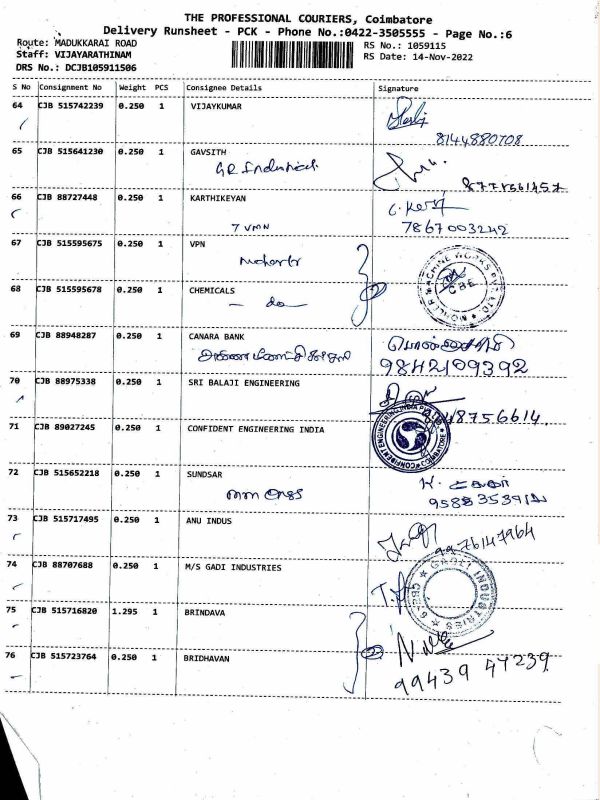 THE PROFESSIONAL COURIERS, Coimbatore
Delivery Runsheet - PCK - Phone No.:0422-3505555 - Page No.:6
Route: MADUKKARAI ROAD
RS No.: 1059115
Staff: VIJAYARATHINAM
RS Date: 14-Nov-2022
DRS No.: DCJB105911506
S No Consignment No Weight PCS Consignee Details Signature
64 CJB 515742239 0.250 1 VIJAYKUMAR
8144880708
65 CJB 515641230 0.250 1 GAVSITH
GR Industrial
66 CJB 88727448 0.250 1 KARTHIKEYAN
7 VMN 7867003242
67 CJB 515595675 0.250 1 VPN
68 CJB 515595678 0.250 1 CHEMICALS
- do
CBE
69 CJB 88948287 0.250 1 CANARA BANK
9842109392
70 CJB 88975338 0.250 1 SRI BALAJI ENGINEERING
48756614
71 CJB 89027245 0.250 1 CONFIDENT ENGINEERING INDIA
CONFIDENT ENGINEERING INDIA PVT LTD. COIMBATORE
72 CJB 515652218 0.250 1 SUNDSAR
73 CJB 515717495 0.250 1 ANU INDUS
9976147964
74 CJB 88707688 0.250 1 M/S GADI INDUSTRIES
75 CJB 515716820 1.295 1 BRINDAVA
76 CJB 515723764 0.250 1 BRIDHAVAN
99439 47239